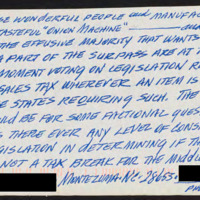 SE WONDERFUL PEOPLE and MANUFAC
TASTEFUL "ONION MACHINE"
THE EFFUSIVE MAJORITY THAT WANTS
A PART OF THE SURPASS AXE AT
MOMENT VOTING ON LEGISLATION R
SALES TAX WHEREVER AN ITEM IS
E STATES REQUIRING SUCH. THE
ULD BE FOR SOME FACTIONAL QUES
S THERE EVER ANY LEVEL OF CONS
GISLATION IN DETERMINING IF TH
NOT A TAX BREAK FOR THE MIDDL
MONTEZUMA NC 28653